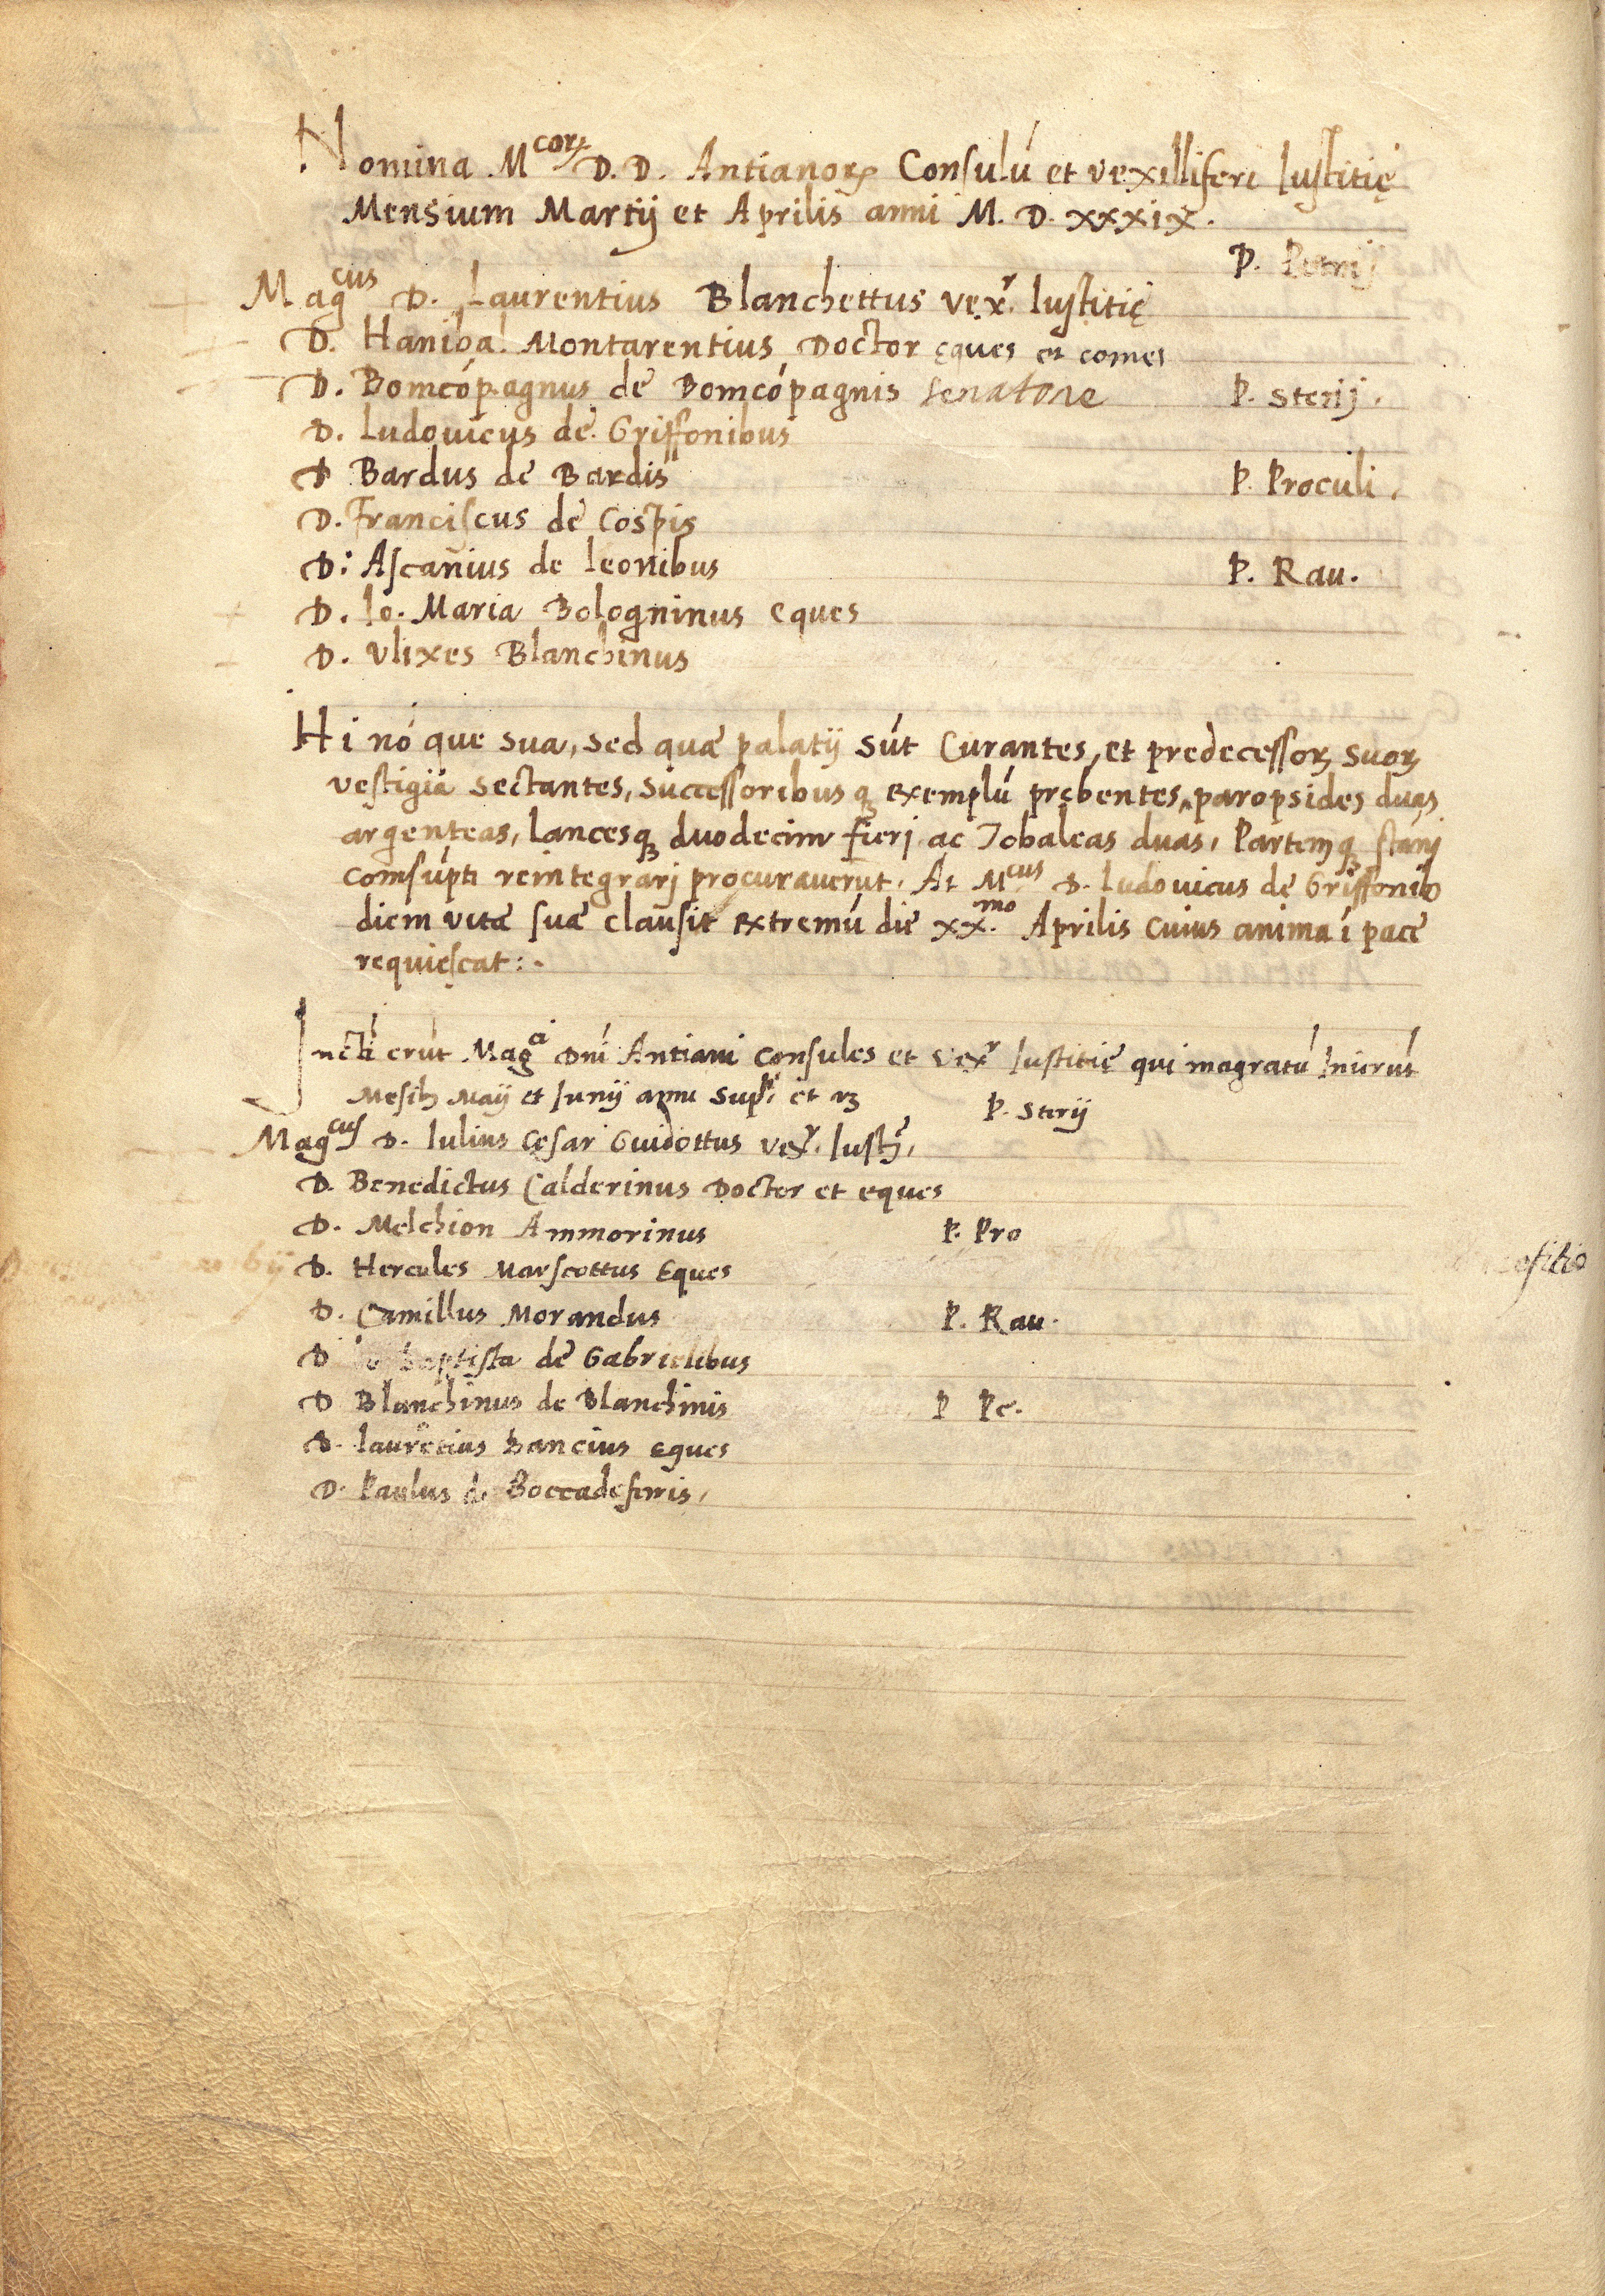 Nomina M^corꝝ D. D. Antianorꝝ Consulú et vexilliferi Iustitię
Mensium Martij et Aprilis anni M. D. xxxix.
P. Petrij
Mag^cus D. Laurentius Blanchettus vex^r. Iustitię
D. Haniba. Montarentius Doctor ęques et comes
D. Bomcópagnus de Bomcópagnis senatore P. Sterij.
D. Ludouicus de Griffonibus
D Bardus de Bardis P. Proculi.
D. Franciscus de Cospis
D: Ascanius de leonibus P. Rau.
D. Io. Maria Bologninus eques
D. Vlixes Blanchinus
Hi nó que sua, sed quæ palatij sút Curantes, et predecessorꝝ suorꝝ
vestigia sectantes, successoribus qꝫ exemplú prębentes, paropsides duas
argenteas, Lancesqꝫ duodecim fierj ac Tobaleas duas, Partemqꝫ stanj
comsúpti reintegrarj procurauerút. At M^cus D. Ludouicus de Griffonib
diem vitæ suæ clausit extremú die xx.^mo Aprilis cuius anima í pace
requiescat:.
Mag^ci Dní Antiani Consules et vex^r Iustitię qui magratú Inierút
Mesibꝫ Maij et Iunij P. Sterij
Mag^cus D. Iulius Cęsar Guidottus vex^r. Iust^ę.
D. Benedictus Calderinus Doctor et eques
D. Melchion Ammorinus P. Pro
D. Hercules Marscottus Eques
D. Camillus Morandus P. Rau.
D Io baptista de Gabrielibus
D Blanchinus de Blanchinis P Pe.
D. laurétius hancius eques
D. Paulus de Boccadeferris.